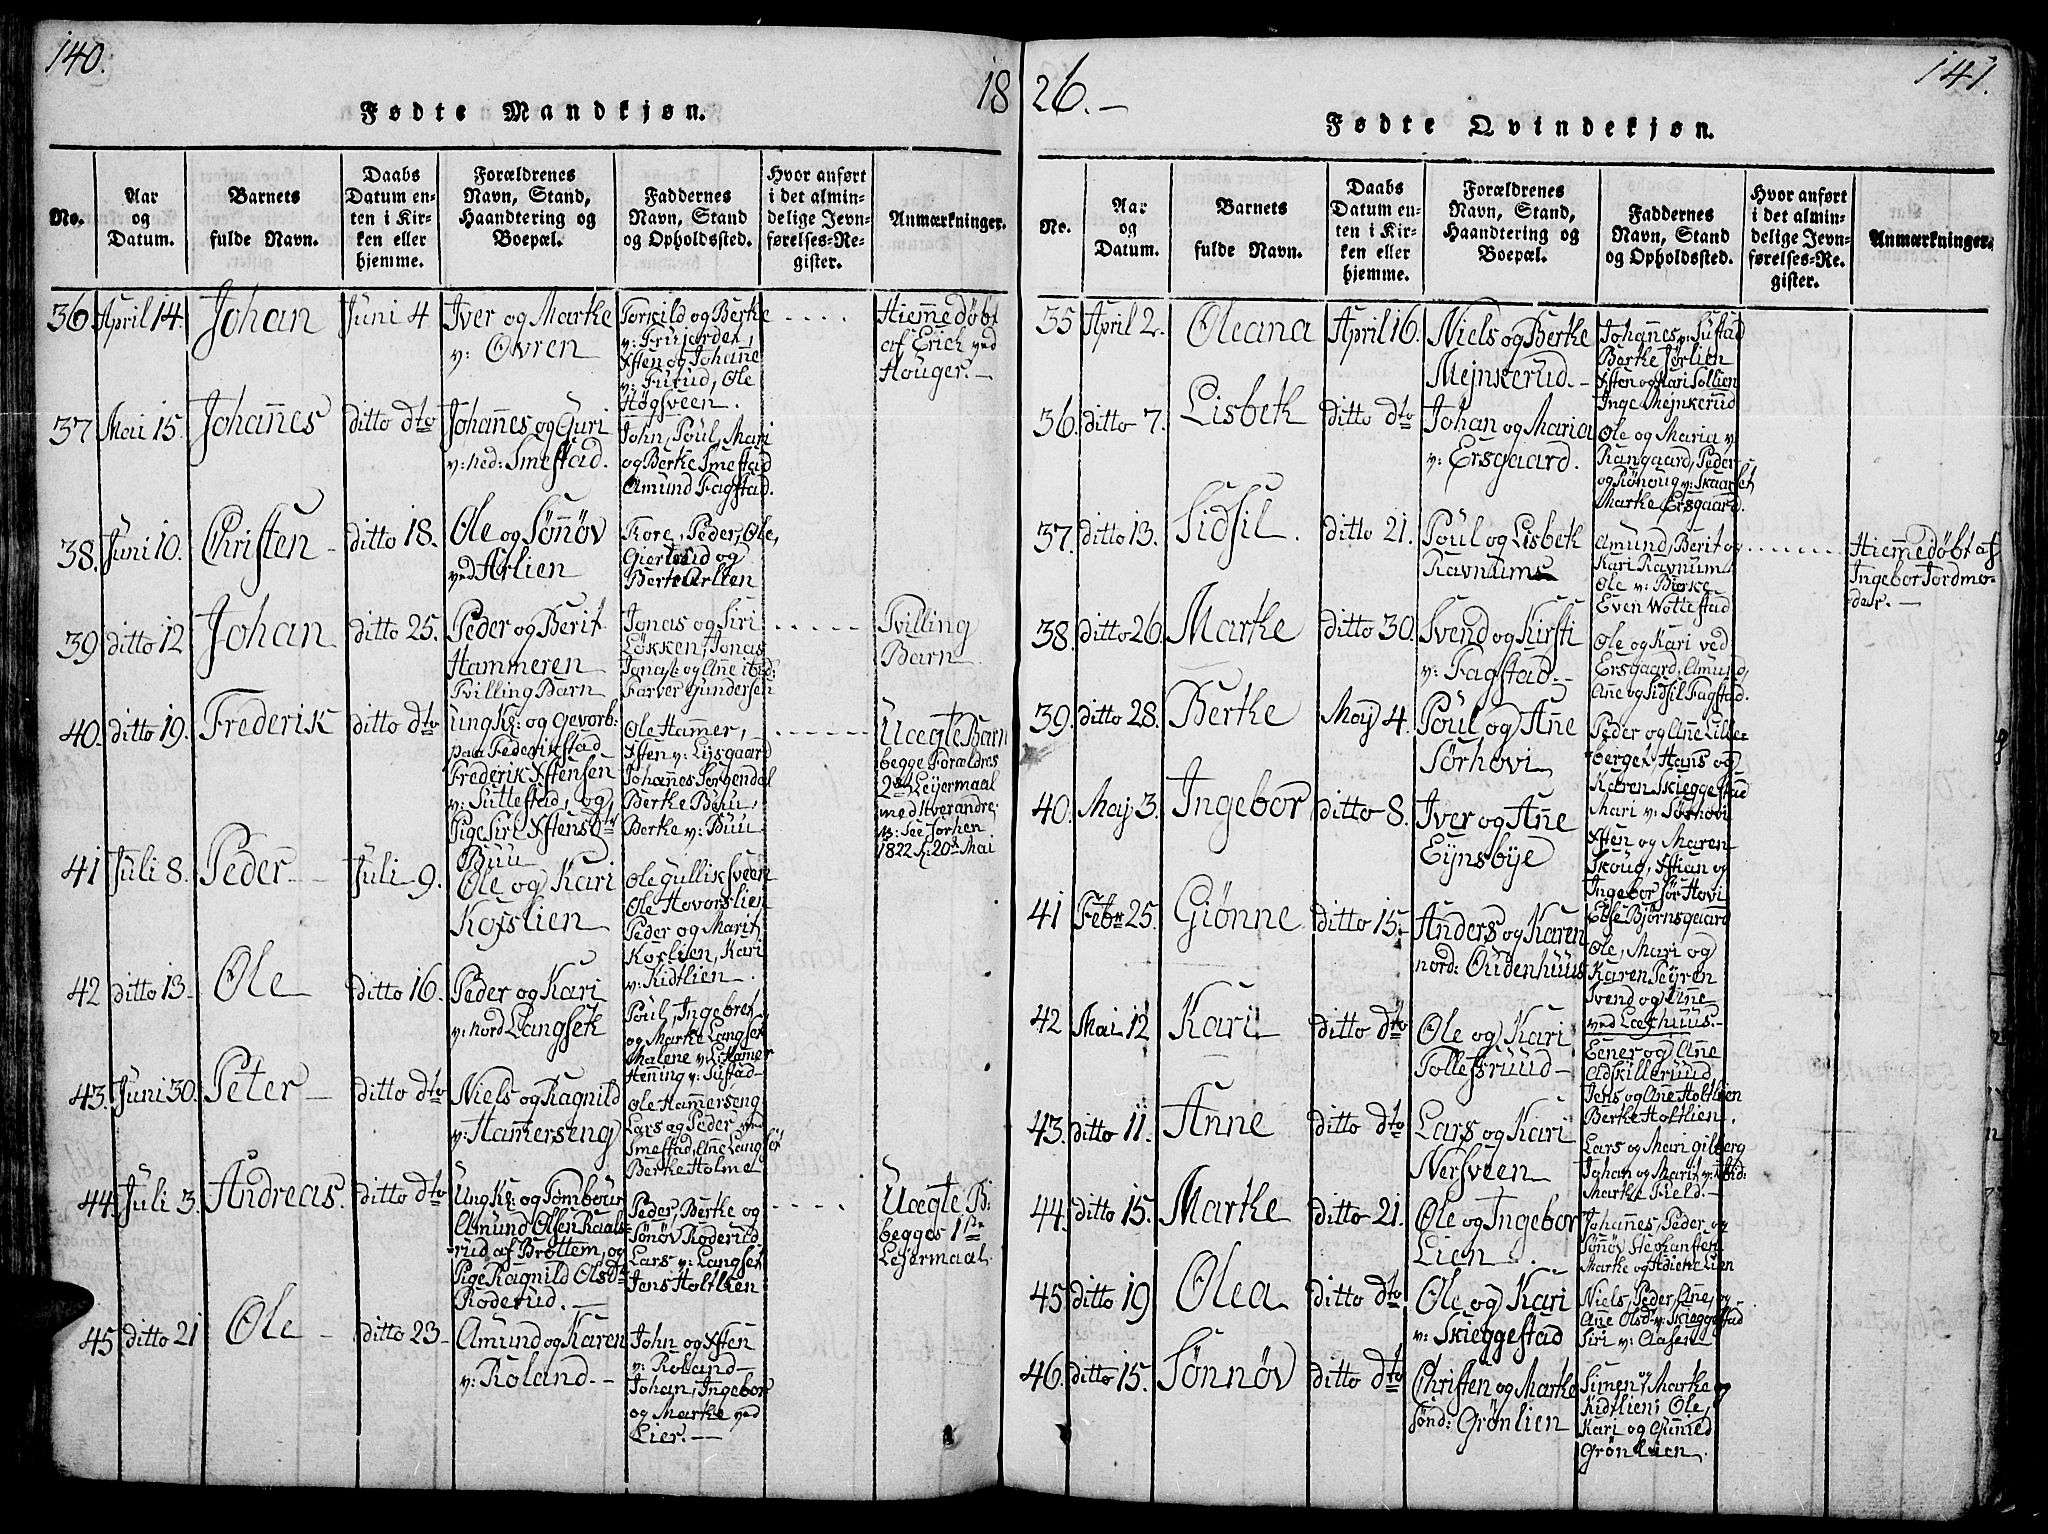 140.
18
Fødte Mandkjøn.
No.
Aar
og
Datum.
Barnets
fulde Navn.
Daabs
Datum en-
ten i Kir-
ken eller
hjemme.
Forældrenes
Navn, Stand,
Haandtering og
Boepæl.
Faddernes
Navn, Stand
og Opholdssted.
Hvor anført
i det almin-
delige Jevn-
førelses-Re-
gister.
Anmærkninger.
36 April 14. Johan Juni 4
Iver og Marke
v: Øvren
Torkild og Berke
v: Frujorden,
Xsten og Johane
v: Furud, Ole
Høgsveen.
Hiemmedøbt
af Erich ved
Houger. —
37 Mai 15. Johannes ditto dto
Johannes og Guri
v: ned: Smestad.
John, Poul, Mari
og Berke Smestad
Amund Fagstad.
38. Juni 10. Christen ditto 18.
Ole og Sønnøv
ved Arlien
Tore, Peder, Ole,
og
Berte Arlien
39 ditto 12 Johan ditto 25.
Peder og Berit
Hammeren
Tvilling Barn
Jonas og Siri
Løkken, Jonas
Jonas: og Ane ibid:
Farver Gundersen
Tvilling
Barn.
40. ditto 19. Frederik ditto dto
Ung K: og Gevorb:
paa Federikstad
Frederik Xstensen
v: Suttestad, og
Pige Siri Xstensdtr
Buu
Ole Hammer,
Xsten v: Lysgaard
Johannes Jørgendal
Berke Buu,
Berke v: Buu
Uægte Barn
begge Forældres
2det Leyermaal
med hverandre,
1822 d: 20de Mai
41 Juli 8. Peder Juli 9.
Ole og Kari
Koxslien
Ole Gulliksveen
Ole Hovorslien
Peder og Marit
Koxslien, Kari
v: Kidtlien.
42 ditto 13 Ole ditto 16.
Peder og Kari
v: nord Langsek
Poul, Ingebret
og Marke Langsek
Malene v: L: Hamer
Henning v: Sustad
43. Juni 30. Peter ditto dto
Niels og Ragnild
v: Hammerseng
Ole Hammerseng
Lars og Peder ved
Smestad, Ane Langsæt
Berke Holme
44. Juli 3. Andreas. ditto dto
Ung K: og Tombour
Amund Olsen Raals-
rud af Brøttem, og
Pige Ragnild Olsdtr
Roderud. —
Peder, Berke og
Sønøv Roderud
Lars v: Langset
Jens Holtlien
Uægte B:
begges 1ste
Lejermaal.
45 ditto 21 Ole ditto 23
Amund og Karen
v: Roland. —
John og Xsten
v: Rolland —
Johan, Ingebor
og Marke ved
Lier. —
26. —
141.
Fødte Qvindekjøn.
No.
Aar
og
Datum.
Barnets
fulde Navn.
Daabs
Datum en-
ten i Kir-
ken eller
hjemme.
Forældrenes
Navn, Stand,
Haandtering og
Boepæl.
Faddernes
Navn, Stand
og Opholdssted.
Hvor anført
i det almin-
delige Jevn-
førelses-Re-
gister.
Anmærkninger.
35 April 2. Oleana April 16.
Niels og Berke
Mejnkerud —
Johannes v: Sustad
Berke Jørlien
Xsten og Kari Sollien
Inge Mejnkerud
36. ditto 7. Lisbek ditto dto
Johan og Maria
v: Ersgaard.
Ole og Maria v
Rangaard, Peder
og Rønoug v: Skaarset,
Marke Ersgaard.
37. ditto 13. Sidsil. ditto 21.
Poul og Lisbek
Ravnums
Amund, Berit og
Kari Ravnum
Ole v: Birke
Even Wottestad
Hiemmedøbt af
Ingebor Jordmo-
der. —
38. ditto 26. Marke ditto 30.
Svend og Kirsti
v: Fagstad. —
Ole og Kari ved
Ersgaard, Amund,
Ane og Sidsil Fagstad.
39. ditto 28. Berke May 4.
Poul og Anne
Sørhovi
Peder og Ane Lille-
berget, Hans og
Karen Skieggestad
Mari v: Sørhovi
40. May 3. Ingebor ditto 8.
Iver og Anne
Eynsbye
Xsten og Maren
Skoug, Xstian og
Ingebor Sør Hovi
Else Bjørnsgaard
41 Febr 25. Giønne ditto 15.
Anders og Karen
nord: Oudenhuus
Ole, Mari og
Karen Seyren
Svend og Ane
ved Laxhuus. —
42 Mai 12 Kari ditto dto
Ole og Kari
Tollefsruud —
Eener og Ane
Adskilleruud
Jens og Ane Holtlien
Berke Holtlien.
43. ditto 11. Anne ditto dto
Lars og Kari
Nersveen
Lars og Mari Gilberg
Johan og Marit v:
Marke Field. —
44. ditto 15. Marke ditto 21.
Ole og Ingebor
Lien.
Johannes, Peder, og
Sønnøv Stephansten
Marke og Lien
45 ditto 19 Olea ditto dto
Ole og Kari
v: Skieggestad
Niels, Peder, Ane, og
Ane Olsd v: Skieggestad
Siri v: Aasen
46. ditto 15. Sønnøv ditto dto
Christen og Marke
sønd: Grønlien
Simen og Marke
Kidtlien, Ole,
Kari og Gunild
Grønlien.